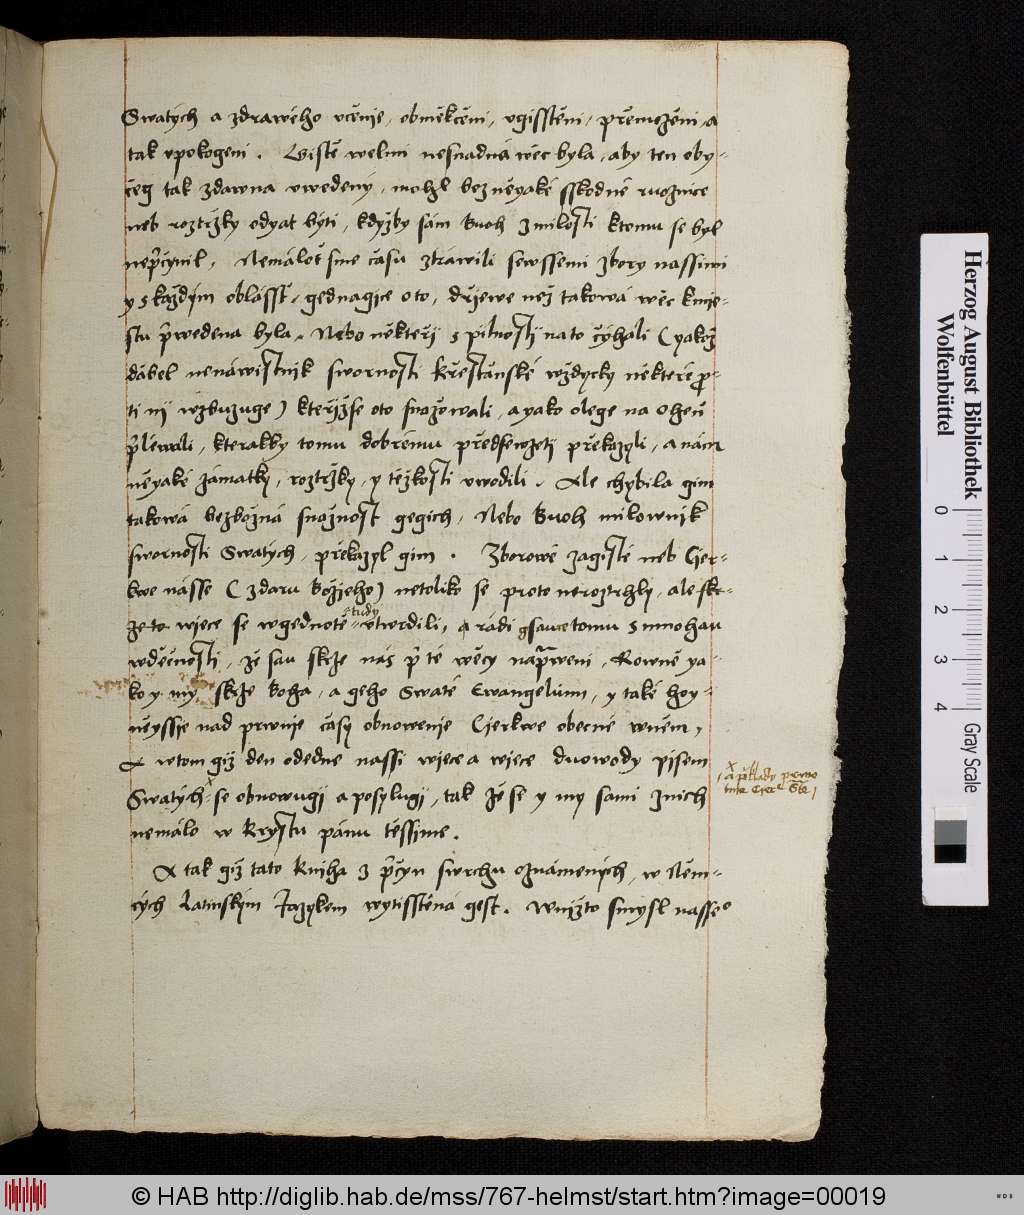 Swatých a zdrawého včenije, obměkčeni, vgisstěni, přemoženi, a
tak vpokogeni. Gistě welmi nesnadná wěc byla, aby ten oby-
čeg tak zdawna vwedený, mohl bez něyaké sskodné ruoznice
neb roztržky odyat býti, kdyžby sám Buoh zmilosti ktomu se byl
nepřičynil, Nemáloť sme času ztráwili sewssemi zbory nassimi
y s každým oblásst, gednagice oto, dřijewe než takowá wěc kmie-
stu přiwedena byla, Nebo někteřij s pilnostij na to čýhali (yakož
dábel nenáwistnik swornosti křestánské wždycky některé pro-
ti nij wzbuzuge) kteřijžse oto snažowali, a yako olege na oheň
přiléwali, kterakby tomu dobrému předsewzetj překazyli, a nám
něyaké zámatky, roztržky, y těžkosti vwodili. Ale chybila gim
takowá bezbožná snažnost gegich, Nebo Buoh milownik
swornosti Swatých, překazyl gim. Zborowé zagisté neb Cjer-
kwe násse (z daru Božjeho) netoliko se proto neroztrhly, ale skr-
ze to wjece se wgednotě etudy vtwrdili, a rádi gsauce tomu s mnohau
wděčnosti, že sau skrze nás při té wěcy naprweni, Rowně ya-
ko y my, skrze Boha, a geho Swaté Ewangelium, y také hoy-
něyssje nad prwnje časy obnowenje Cjerkwe obecné wněm,
A wtom giž den odedne nassi wjece a wjece duowody pisem
Swatých x se obnowugij a posylugij, tak že se y my sami znich
nemálo w Krystu pánu těssime.
x
a přiklady prwo
tnie Cier Ste
A tak giž tato kniha z přičyn swrchu oznámených, w Něm-
cých Latinským Jazykem wytisstěná gest. Wnižto smysl nasse
Herzog August Bibliothek
Wolfenbüttel
0 1 2 3 4 Gray Scale
© HAB http://diglib.hab.de/mss/767-helmst/start.htm?image=00019
WDB